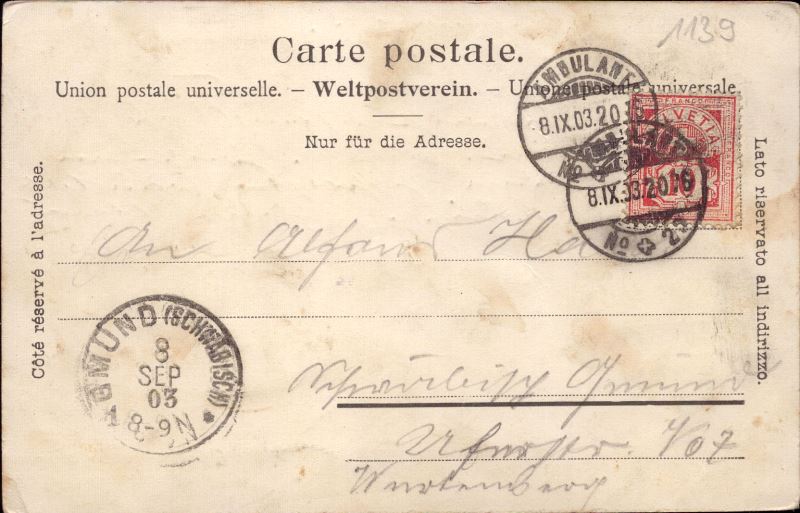 1139
Carte postale.
Union postale universelle. – Weltpostverein. – Unione postale universale.
Nur für die Adresse.
Côté réservé à l'adresse.
Lato riservato all indirizzo.
AMBULANT
8.IX.03.20
No
AMBULANT
8.IX.03.20
No 2
FRANCO
HELVETIA
An Alfons
Schwäbisch Gmünd
Uferstr.
Württemberg
GMÜND (SCHWÄBISCH)
8
SEP
03
8-9N